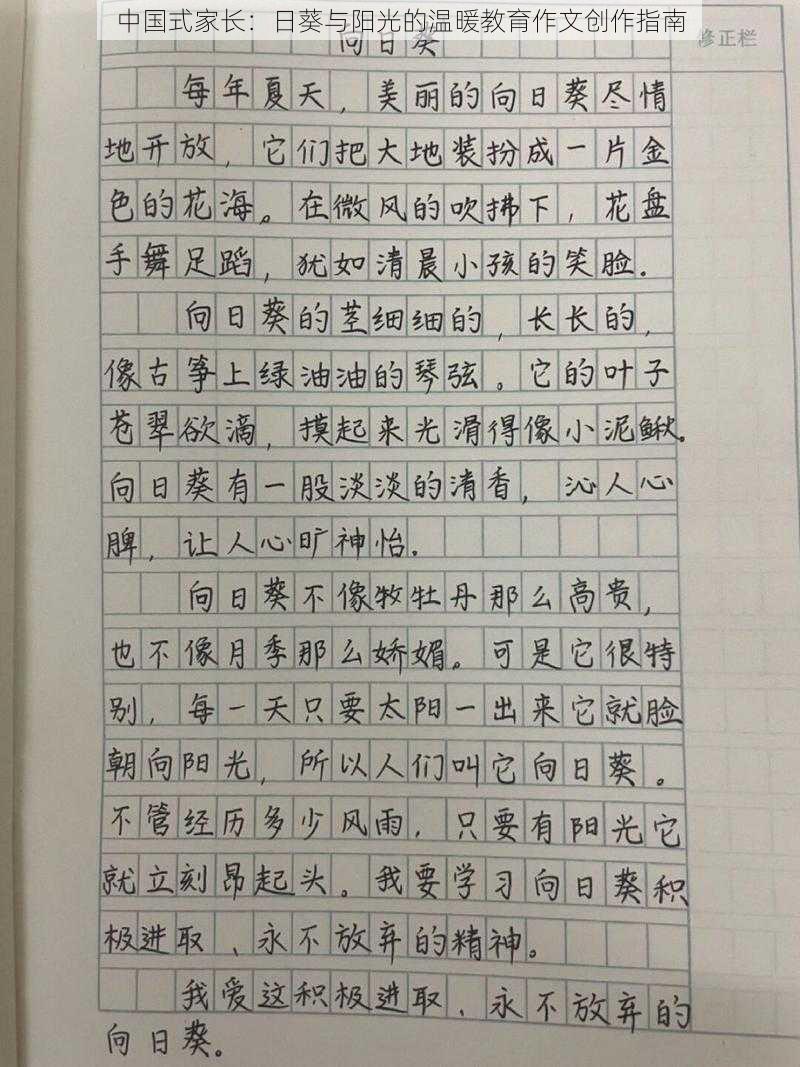 中国式家长：日葵与阳光的温暖教育作文创作指南
向日葵
修正栏
每年夏天，美丽的向日葵尽情
地开放，它们把大地装扮成一片金
色的花海。在微风的吹拂下，花盘
手舞足蹈，犹如清晨小孩的笑脸.
向日葵的茎细细的，长长的，
像古筝上绿油油的琴弦。它的叶子
苍翠欲滴，摸起来光滑得像小泥鳅.
向日葵有一股淡淡的清香，沁人心
脾，让人心旷神怡.
向日葵不像牧牡丹那么高贵，
也不像月季那么娇媚。可是它很特
别，每一天只要太阳一出来它就脸
朝向阳光，所以人们叫它向日葵。
不管经历多少风雨，只要有阳光它
就立刻昂起头。我要学习向日葵积
极进取、永不放弃的精神。
我爱这积极进取、永不放弃的
向日葵。